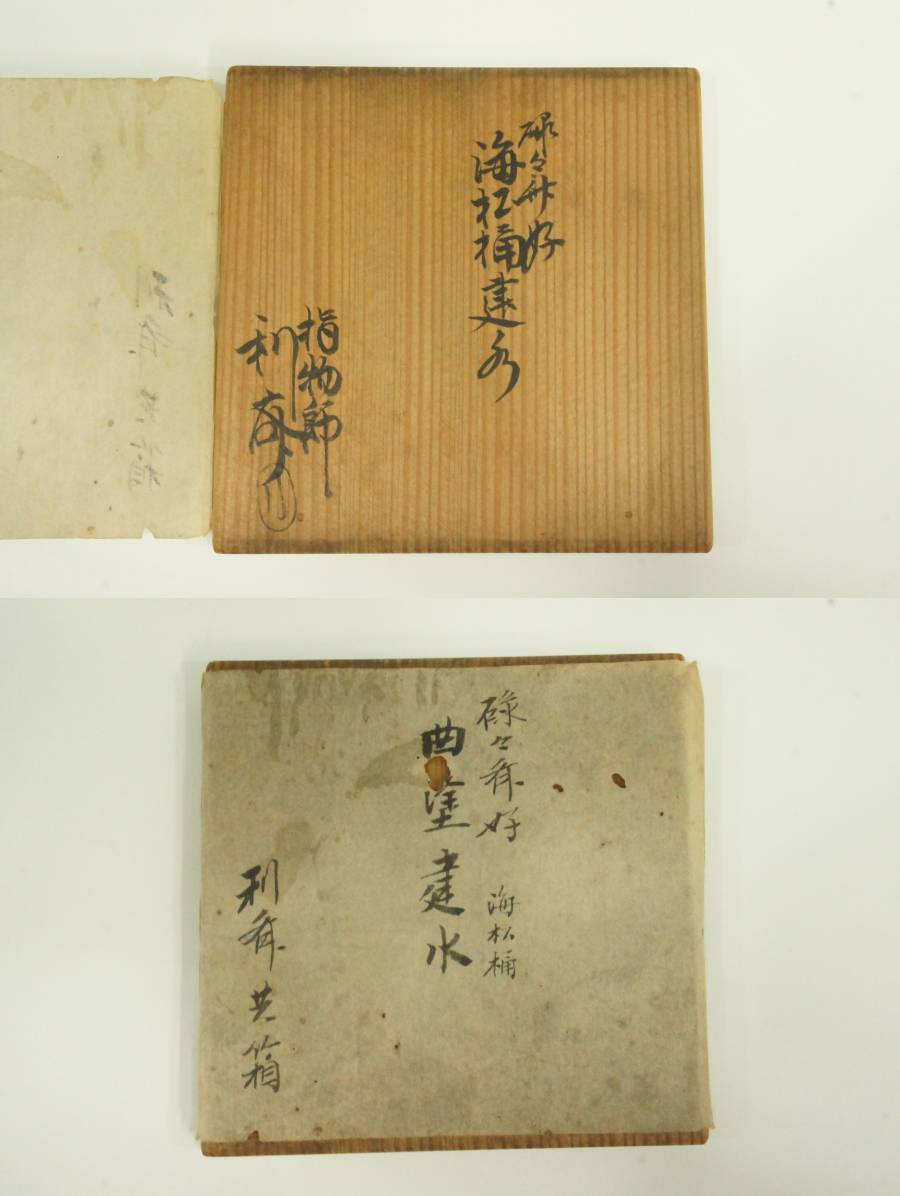 碌々斎好
海松桶建水
指物師
利斎
利斎 共箱
碌々斎好 海松桶
曲塗建水
利斎 共箱